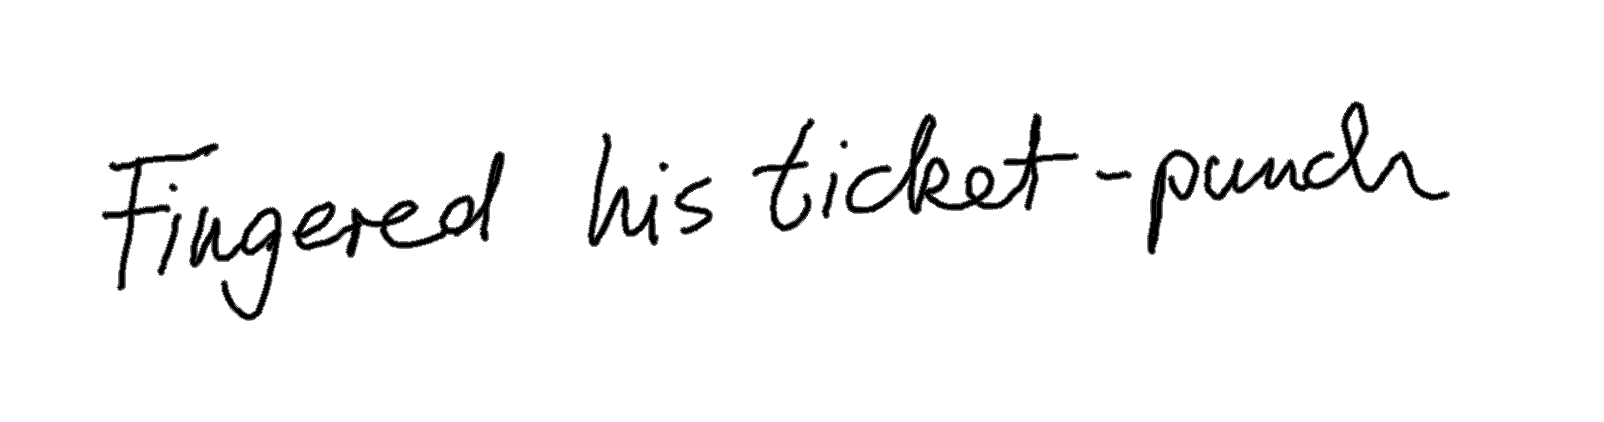 Fingered his ticket-punch